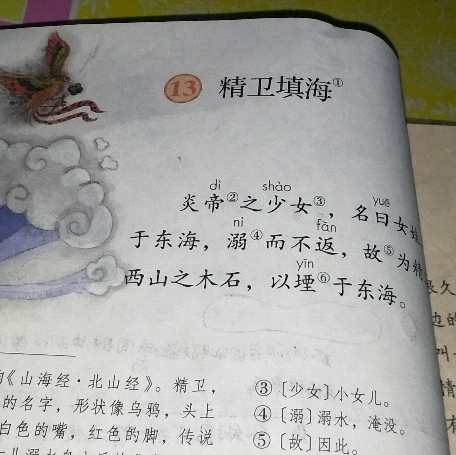 13 精卫填海①
dì shào yuē
炎帝②之少女③，名曰女
nì fǎn
于东海，溺④而不返，故⑤为精
yīn
西山之木石，以堙⑥于东海。
《山海经·北山经》。精卫，
的名字，形状像乌鸦，头上
白色的嘴，红色的脚，传说
③〔少女〕小女儿。
④〔溺〕溺水，淹没。
⑤〔故〕因此。
久
边的
叫